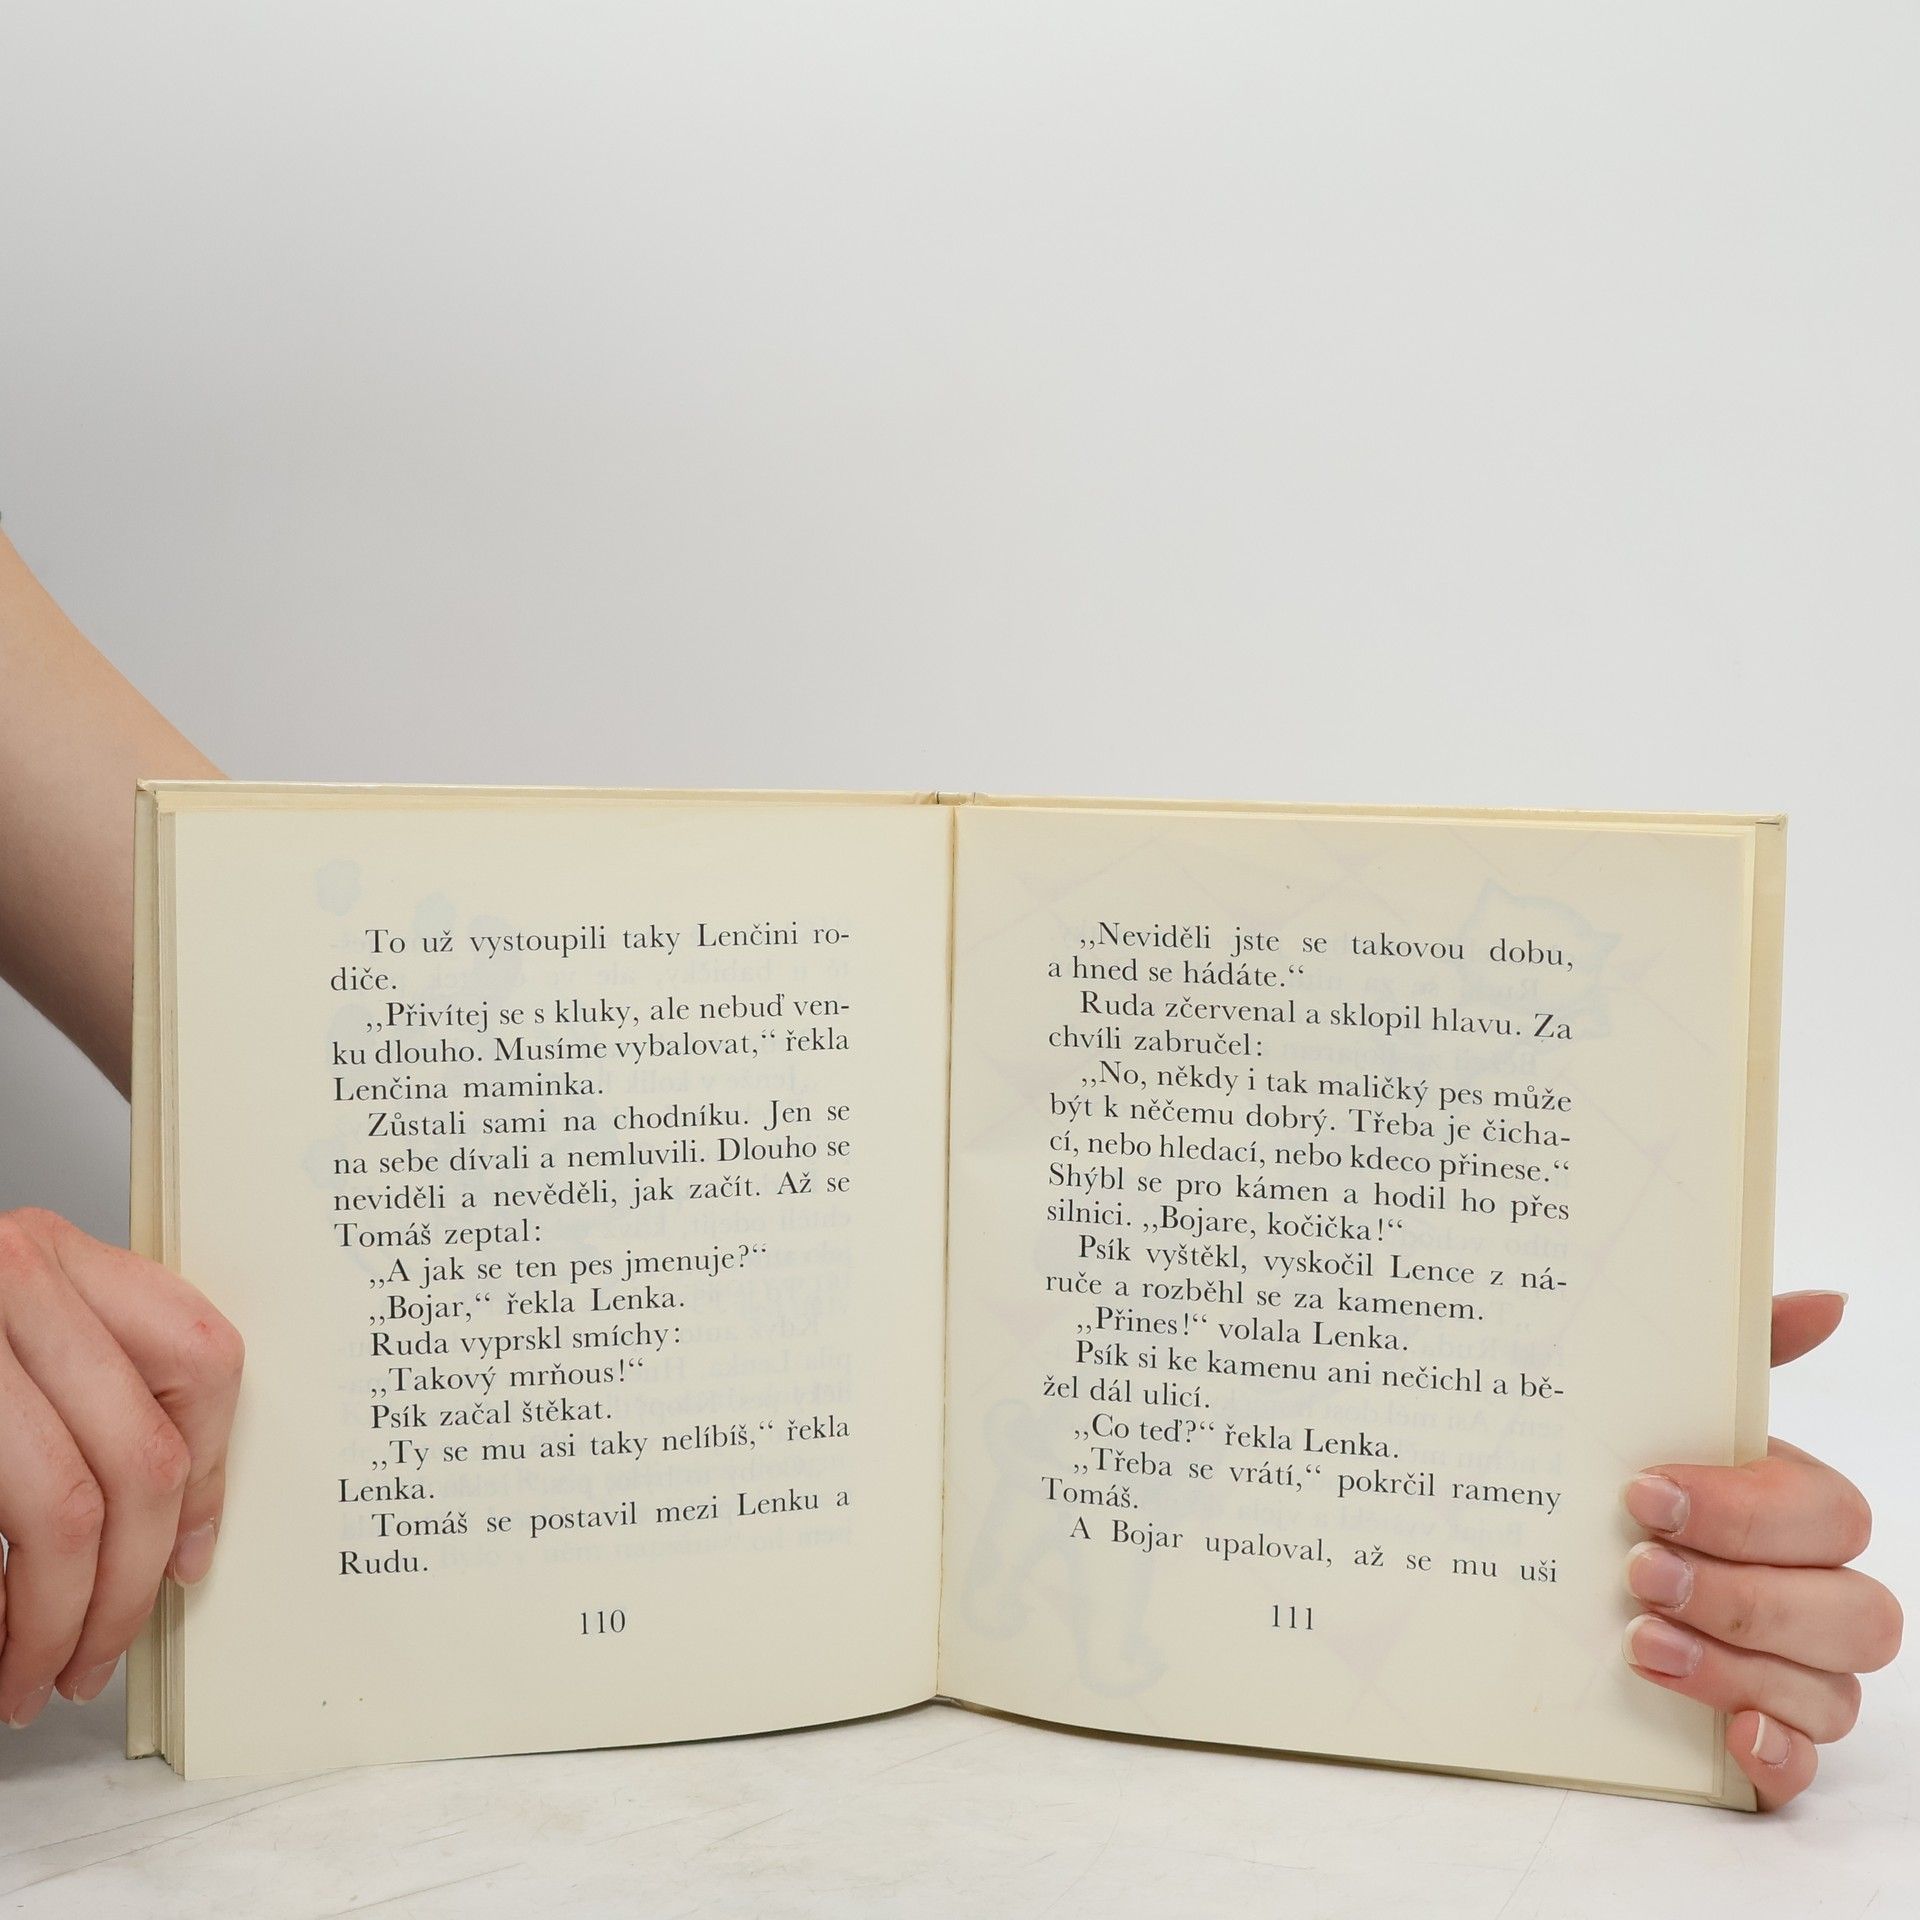 To už vystoupili taky Lenčini ro-
diče.
,,Přivítej se s kluky, ale nebuď ven-
ku dlouho. Musíme vybalovat,“ řekla
Lenčina maminka.
Zůstali sami na chodníku. Jen se
na sebe dívali a nemluvili. Dlouho se
neviděli a nevěděli, jak začít. Až se
Tomáš zeptal:
,,A jak se ten pes jmenuje?“
,,Bojar,“ řekla Lenka.
Ruda vyprskl smíchy:
,,Takový mrňous!“
Psík začal štěkat.
,,Ty se mu asi taky nelíbíš,“ řekla
Lenka.
Tomáš se postavil mezi Lenku a
Rudu.
110
,,Neviděli jste se takovou dobu,
a hned se hádáte.“
Ruda zčervenal a sklopil hlavu. Za
chvíli zabručel:
,,No, někdy i tak maličký pes může
být k něčemu dobrý. Třeba je čicha-
cí, nebo hledací, nebo kdeco přinese.“
Shýbl se pro kámen a hodil ho přes
silnici. ,,Bojare, kočička!“
Psík vyštěkl, vyskočil Lence z ná-
ruče a rozběhl se za kamenem.
,,Přines!“ volala Lenka.
Psík si ke kamenu ani nečichl a bě-
žel dál ulicí.
,,Co teď?“ řekla Lenka.
,,Třeba se vrátí,“ pokrčil rameny
Tomáš.
A Bojar upaloval, až se mu uši
111